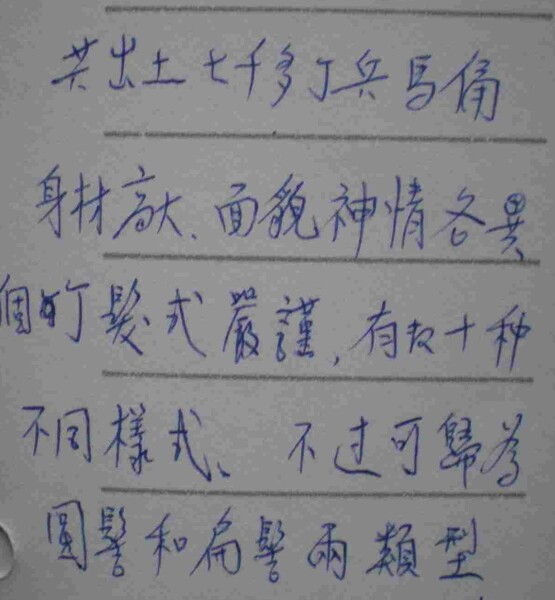 共出土七千多丁兵馬俑
身材高大、面貌神情各異、
個個髮式嚴謹,有數十种
不同樣式、不过可歸為
圓髻和扁髻兩類型